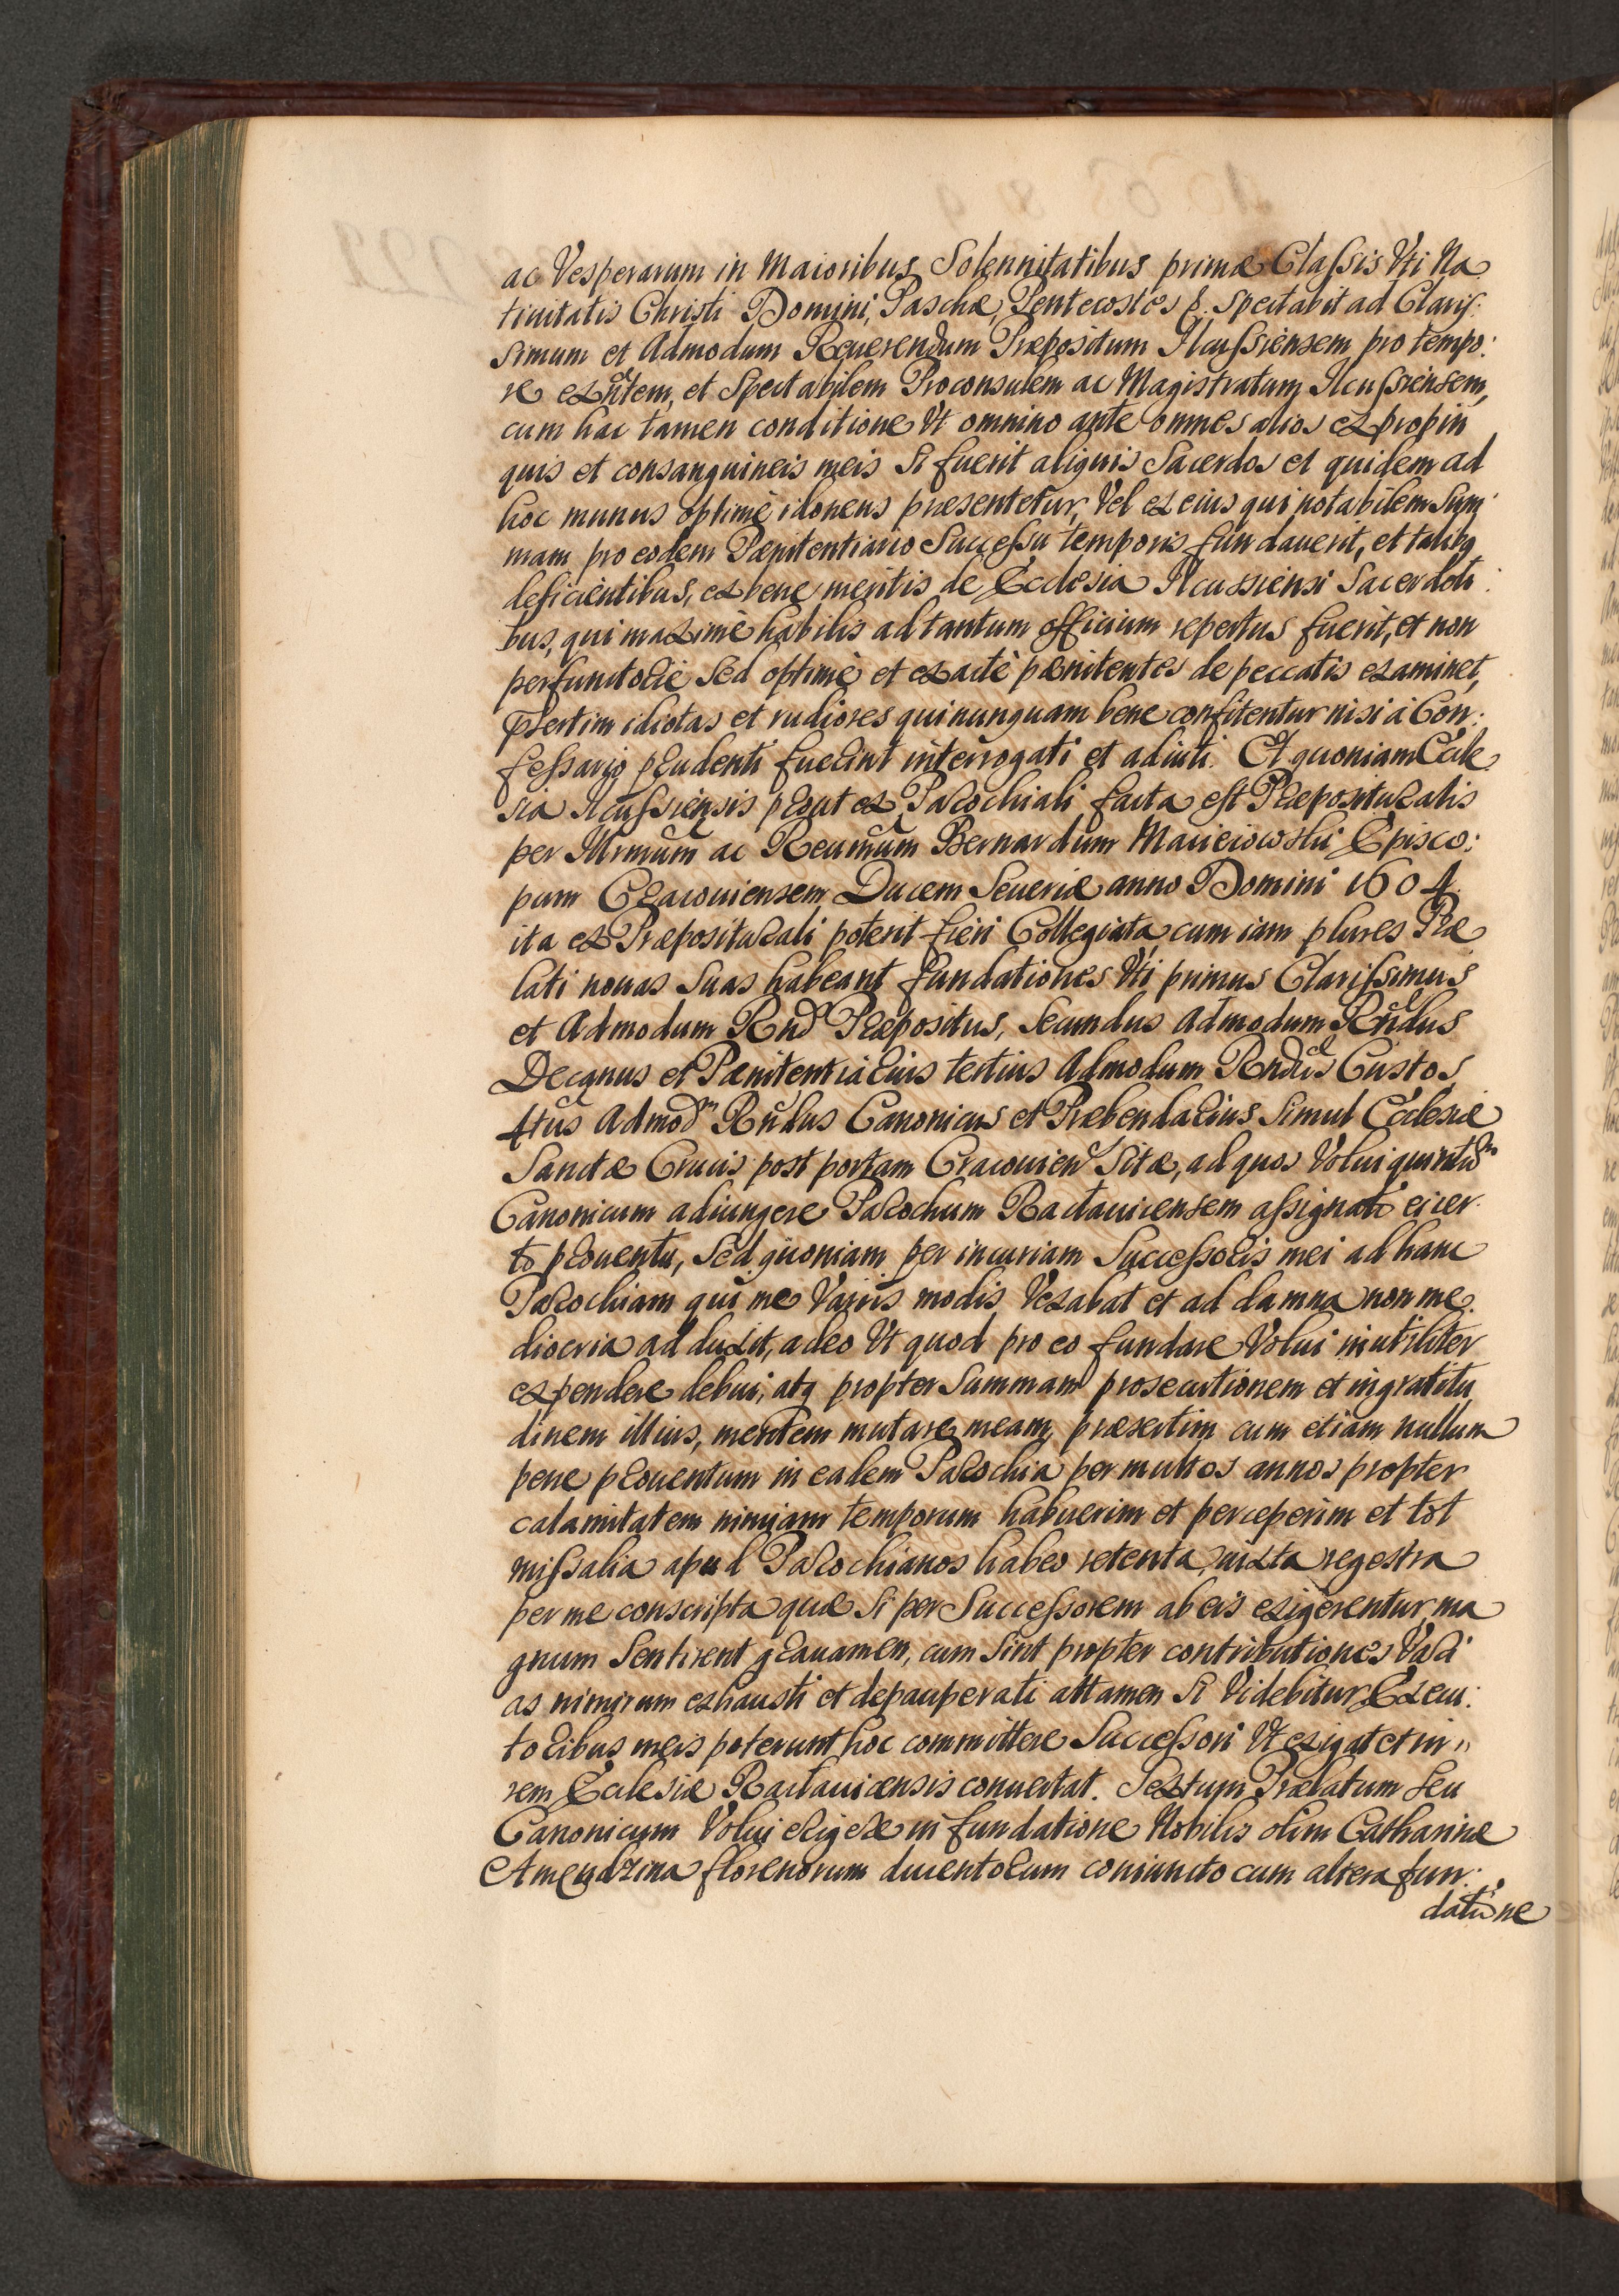 ac Vesperarum in Maioribus Solennitatibus primæ Classis Vti Na
tiuitatis Christi Domini, Paschæ, Pentecostes &. Spectabit ad Claris:
simum et Admodum Reuerendum Præpositum Ilcussiensem pro tempo:
re exñtem, et Spectabilem Proconsulem ac Magistratum Ilcussiensem,
cum hac tamen conditione Vt omnino ante omnes alios ex propin
quis et consanguineis meis Si fuerit aliquis Sacerdos et quidem ad
hoc munus optimè idoneus præsentetur, Vel ex eius qui notabilem Sum:
mam pro eodem Pænitentiario Successu temporis fundauerit, et talibq
deficientibus, ex bene meritis de Ecclesia Ilcussiensi Sacerdoti:
bus, qui maximè habilis ad tantum officium repertus fuerit, et non
perfunctoriè Sed optimè et exactè pænitentes de peccatis examinet,
pſertim idiotas et rudiores qui nunquam bene confitentur nisi à Con:
fessario prudenti fuerint interrogati et adiuti. Et quoniam Eccle
sia Ilcussiensis prout ex Parochiali facta est Præposituralis
per Illrmum ac Reumum Bernardum Macieiowski Episco:
pum Cracouiensem Ducem Seueriæ anno Domini 1604.
ita ex Præposituráli poterit fieri Collegiata, cum iam plures Præ
lati nouas Suas habeant fundationes Vti primus Clarissimus
et Admodum Rnd Præpositus, Secundus Admodum Rndus
Decanus et Pænitentiarius tertius Admodum Rndus Custos
4tus Admodm Rndus Canonicus et Præbendarius Simul Ecclesiæ
Sanctæ Crucis post portam Cracouien Sitæ, ad quos Volui quintum
Canonicum adiungere Parochum Ractauicensem assignato ei cer
to prouentu, Sed quoniam per incuriam Successoris mei ad hanc
Parochiam qui me Varijs modis Vexabat et ad damna non me.
diocria adduxit, adeo Vt quod pro eo fundare Volui inutiliter
expendere debui, atq propter Summam prosecutionem et ingratitu
dinem illius, mentem mutare meam, præsertim cum etiam nullum
pene prouentum in eadem Parochia per multos annos propter
calamitatem nimiam temporum habuerim et perceperim et tot
missalia apud Parochianos habeo retenta, iuxta regestra
per me conscripta quæ Si per Successorem ab eis exigerentur, ma
gnum Sentirent grauamen, cum Sint propter contributiones Vari
as nimirum exhausti et depauperati attamen Si Videbitur Execu:
toribus meis poterunt hoc committere Successori Vt exigat et in"
rem Ecclesiæ Ractauicensis conuertat. Sextum Prælatum Seu
Canonicum Volui erigere in fundatione Nobilis olim Catharinæ
Amendzina florenorum ducentorum coniuncto cum altera fun:
datione